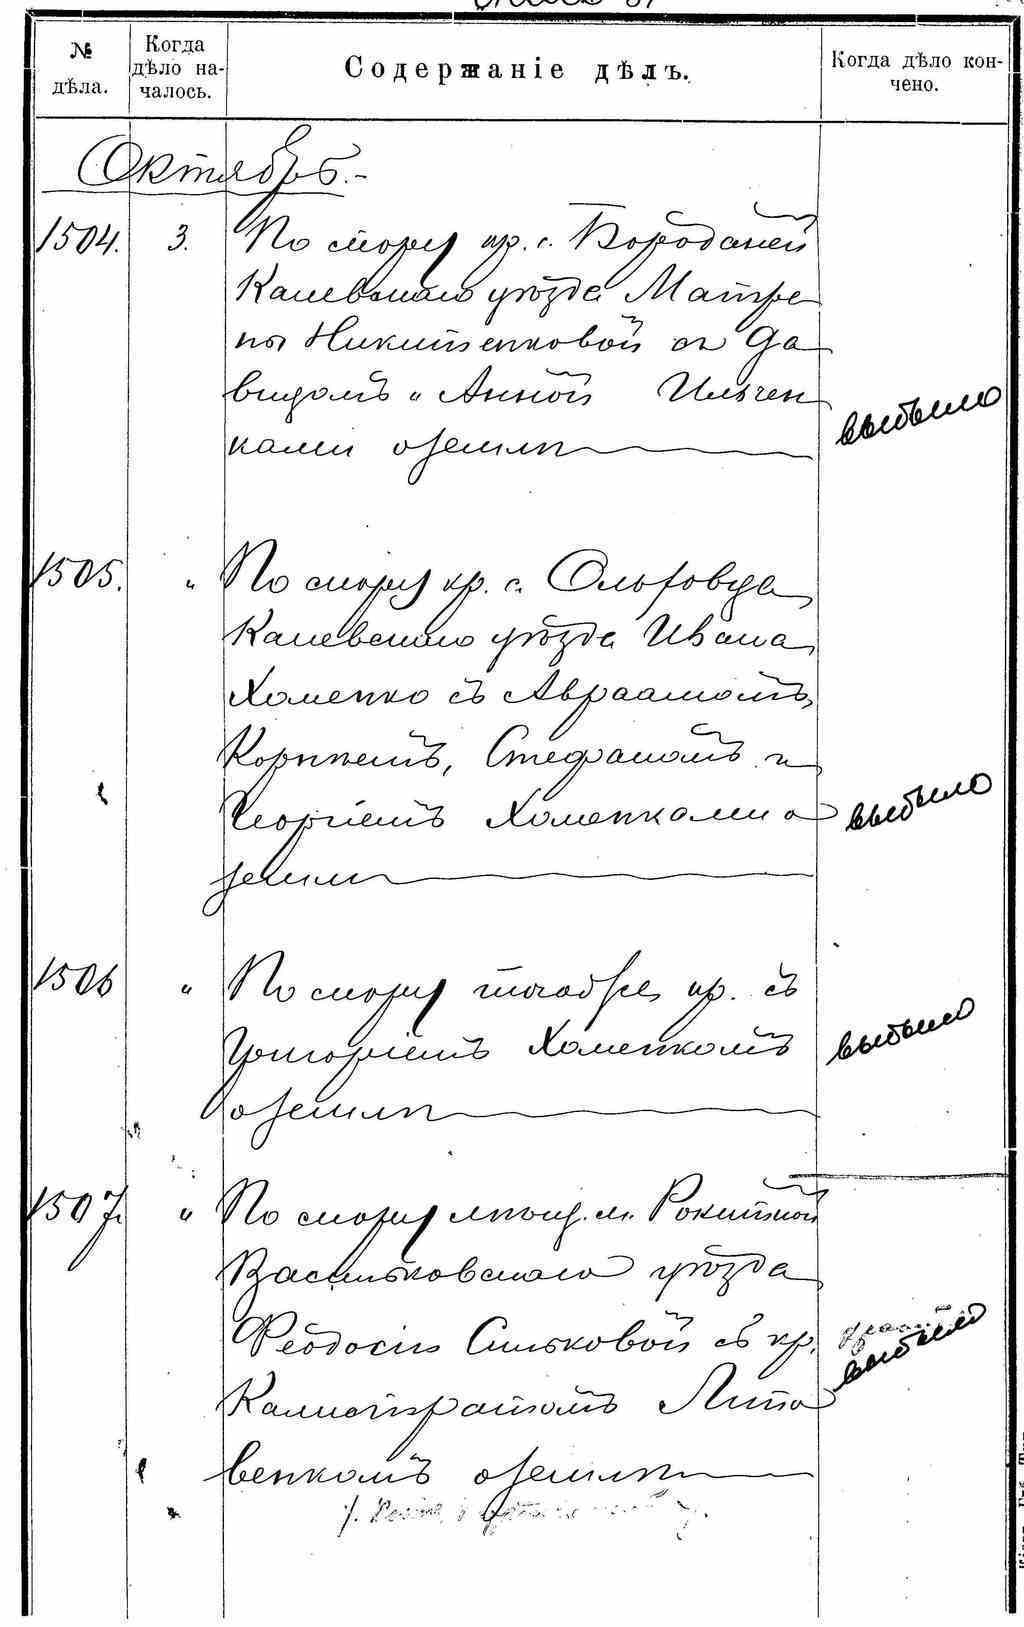 № дѣла.
Когда дѣло началось.
Содержаніе дѣлъ.
Когда дѣло кончено.
Октябрь.-
1504. 3. По спору кр. с. Бороданей
Каневскаго уѣзда Матре
ны Никитенковой съ Да
видомъ и Анной Ильчен
ками о землѣ
выбыло
1505. " По спору кр. с. Ольховца
Каневскаго уѣзда Ивана
Хоменко съ Авраамомъ,
Корнѣемъ, Стефаномъ и
Георгіемъ Хоменками о
землѣ
выбыло
1506 " По спору того же кр. съ
Григоріемъ Хоменкомъ
о землѣ
выбыло
1507. " По спору мѣщ. м. Рокитной
Васильковскаго уѣзда
Феодосіи Сильковой съ кр.
Каллистратомъ Лито
венкомъ о землѣ
выбыло